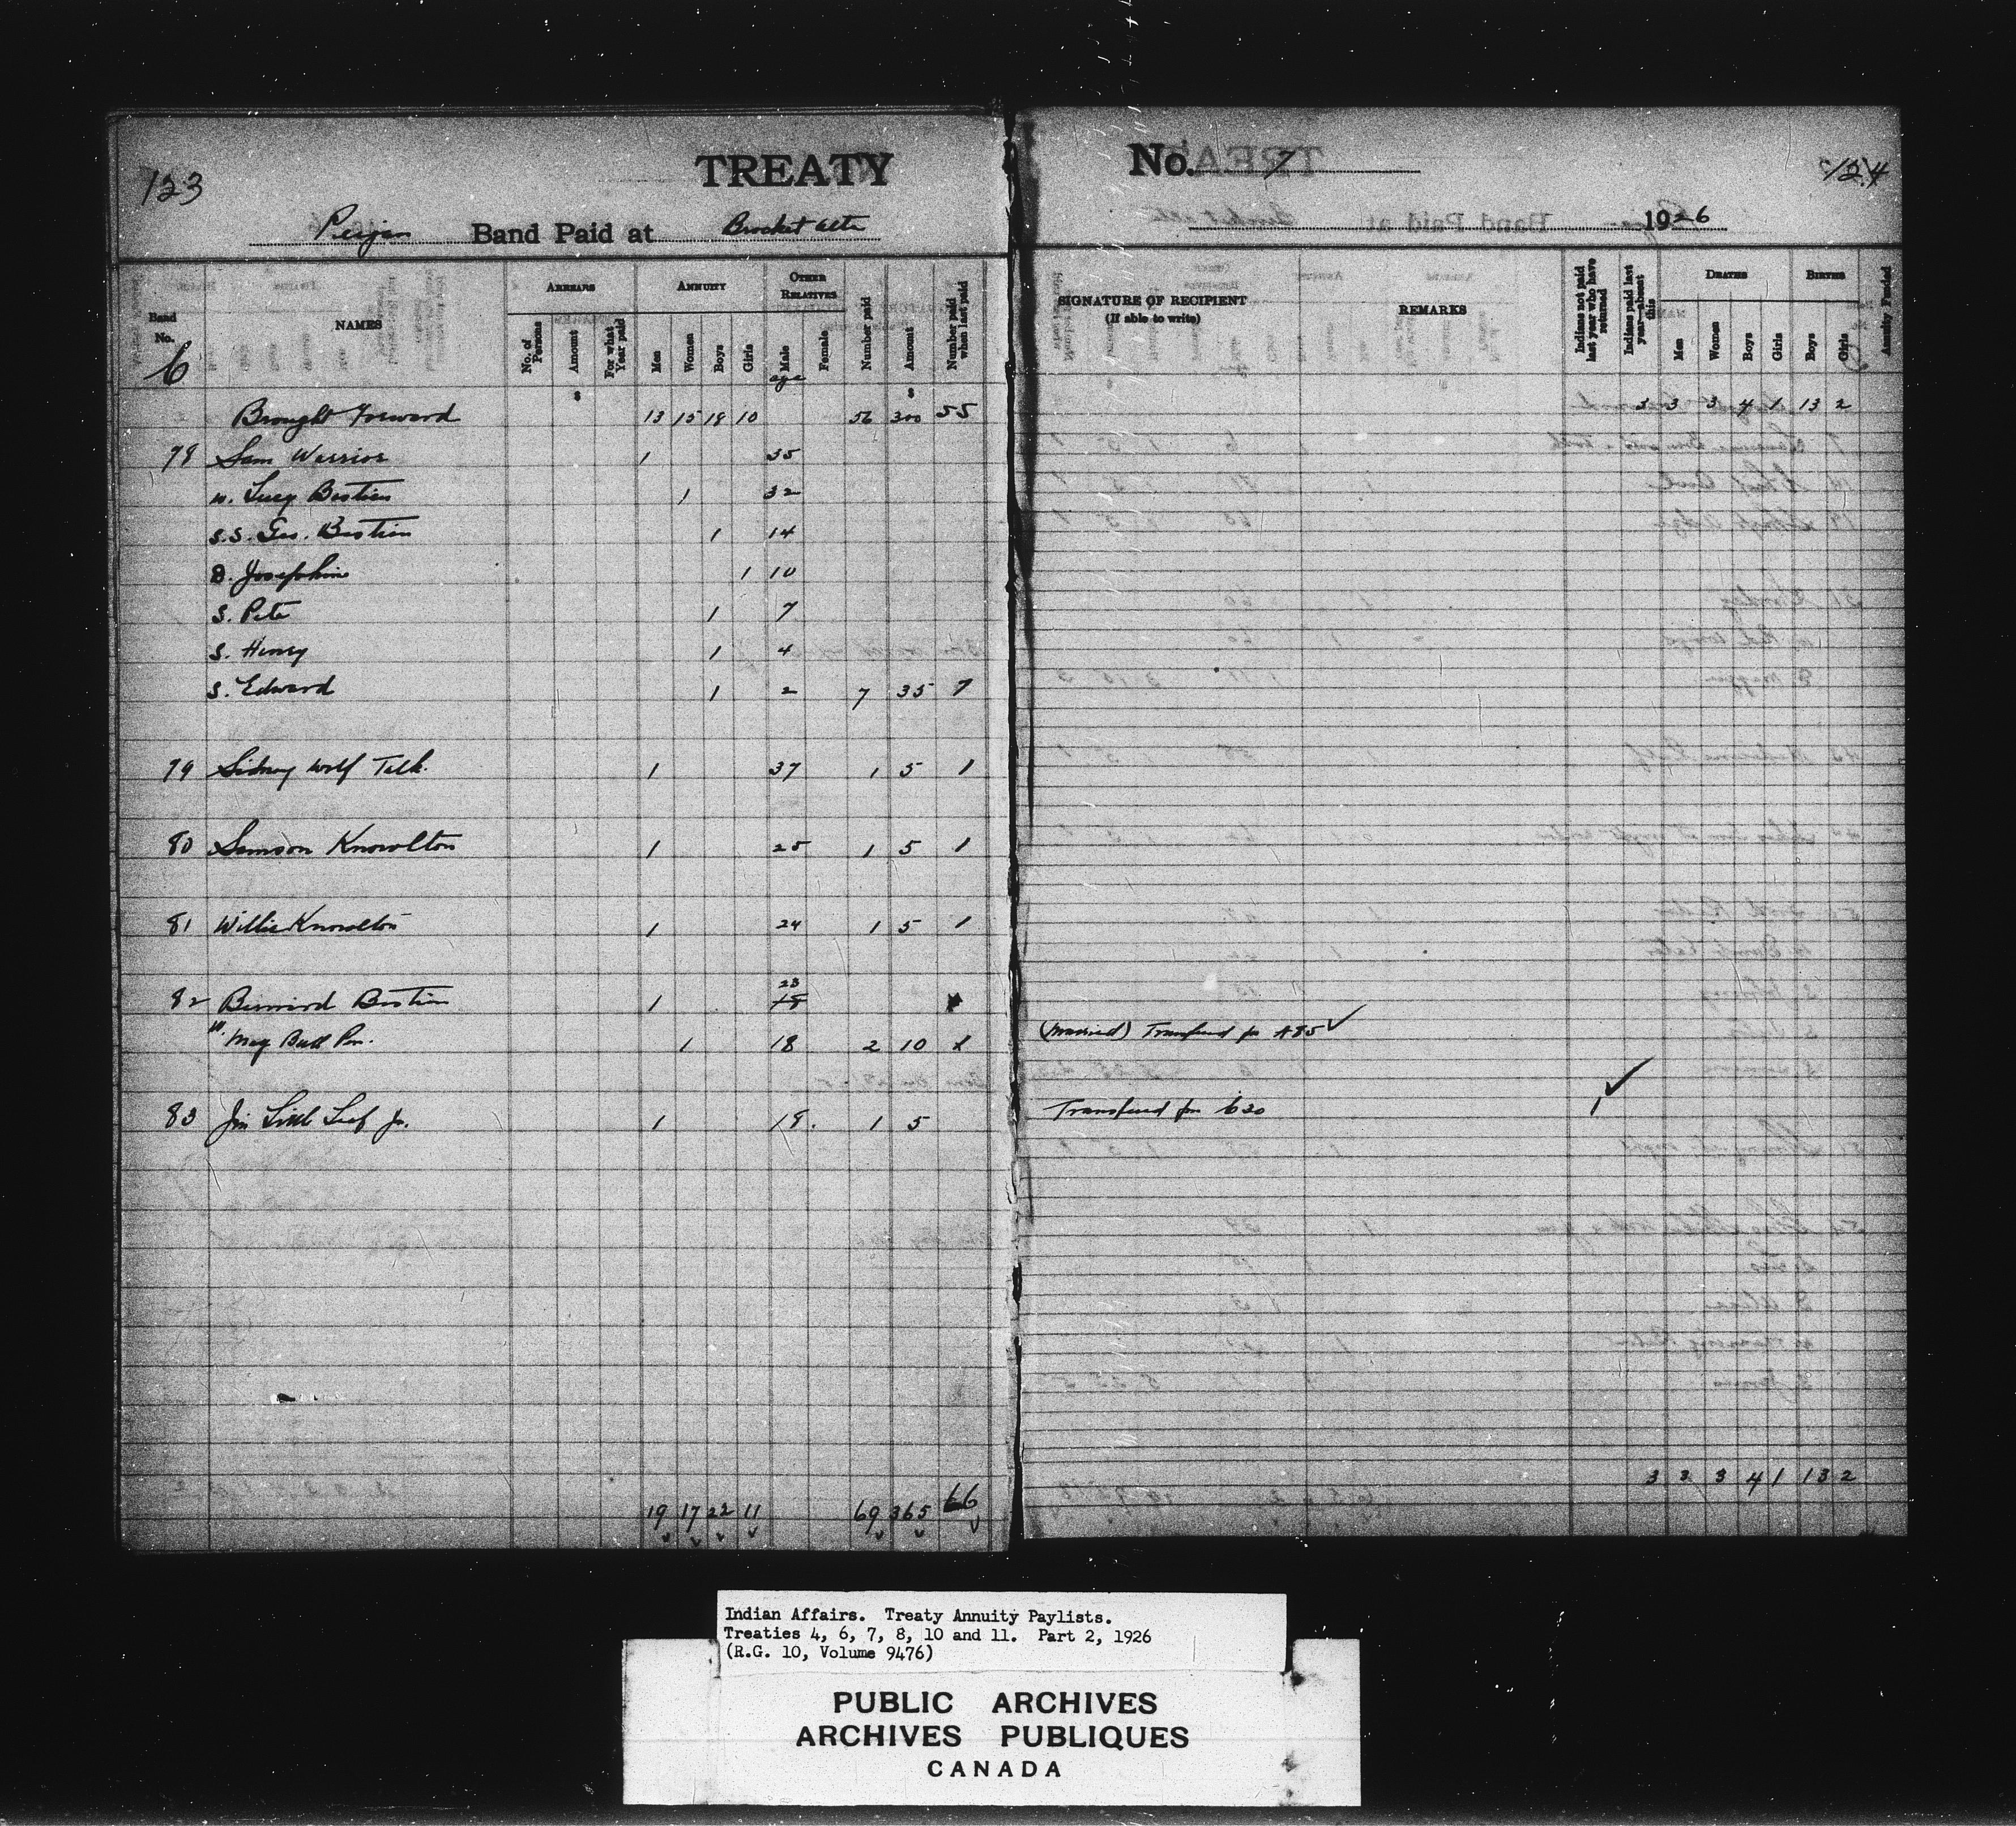 123
TREATY
No. 7
124
Peigan Band Paid at Brocket Alta
1926
Band No.
6
NAMES
ARREARS
No. of Persons
Amount
For what Year paid
ANNUITY
Men
Women
Boys
Girls
OTHER RELATIVES
Male
Female
age
Number paid
Amount
Number paid when last paid
SIGNATURE OF RECIPIENT
(If able to write)
REMARKS
Indians not paid last year who have returned
Indians paid last year—absent this
DEATHS
Men
Women
Boys
Girls
BIRTHS
Boys
Girls
Annuity Funded
$ $
Brought Forward 13 15 18 10 56 300 55 3 3 3 4 1 13 2
78 Sam Warrior 1 35
w. Lucy Bastien 1 32
S.S. Geo. Bastien 1 14
D. Josephine 1 10
S. Pete 1 7
S. Henry 1 4
S. Edward 1 2 7 35 7
79 Sidney Wolf Talk. 1 37 1 5 1
80 Samson Knowlton 1 25 1 5 1
81 Willie Knowlton 1 24 1 5 1
82 Bernard Bastien 1 23 18
w. May Bull Pen. 1 18 2 10 (Married) Transferred from A 85 ✓
83 Jim Little Leaf Jr. 1 18. 1 5 Transferred from b 20 1 ✓
19 17 22 11 69 365 66 3 3 3 4 1 13 2
Indian Affairs. Treaty Annuity Paylists.
Treaties 4, 6, 7, 8, 10 and 11. Part 2, 1926
(R.G. 10, Volume 9476)
PUBLIC ARCHIVES
ARCHIVES PUBLIQUES
CANADA